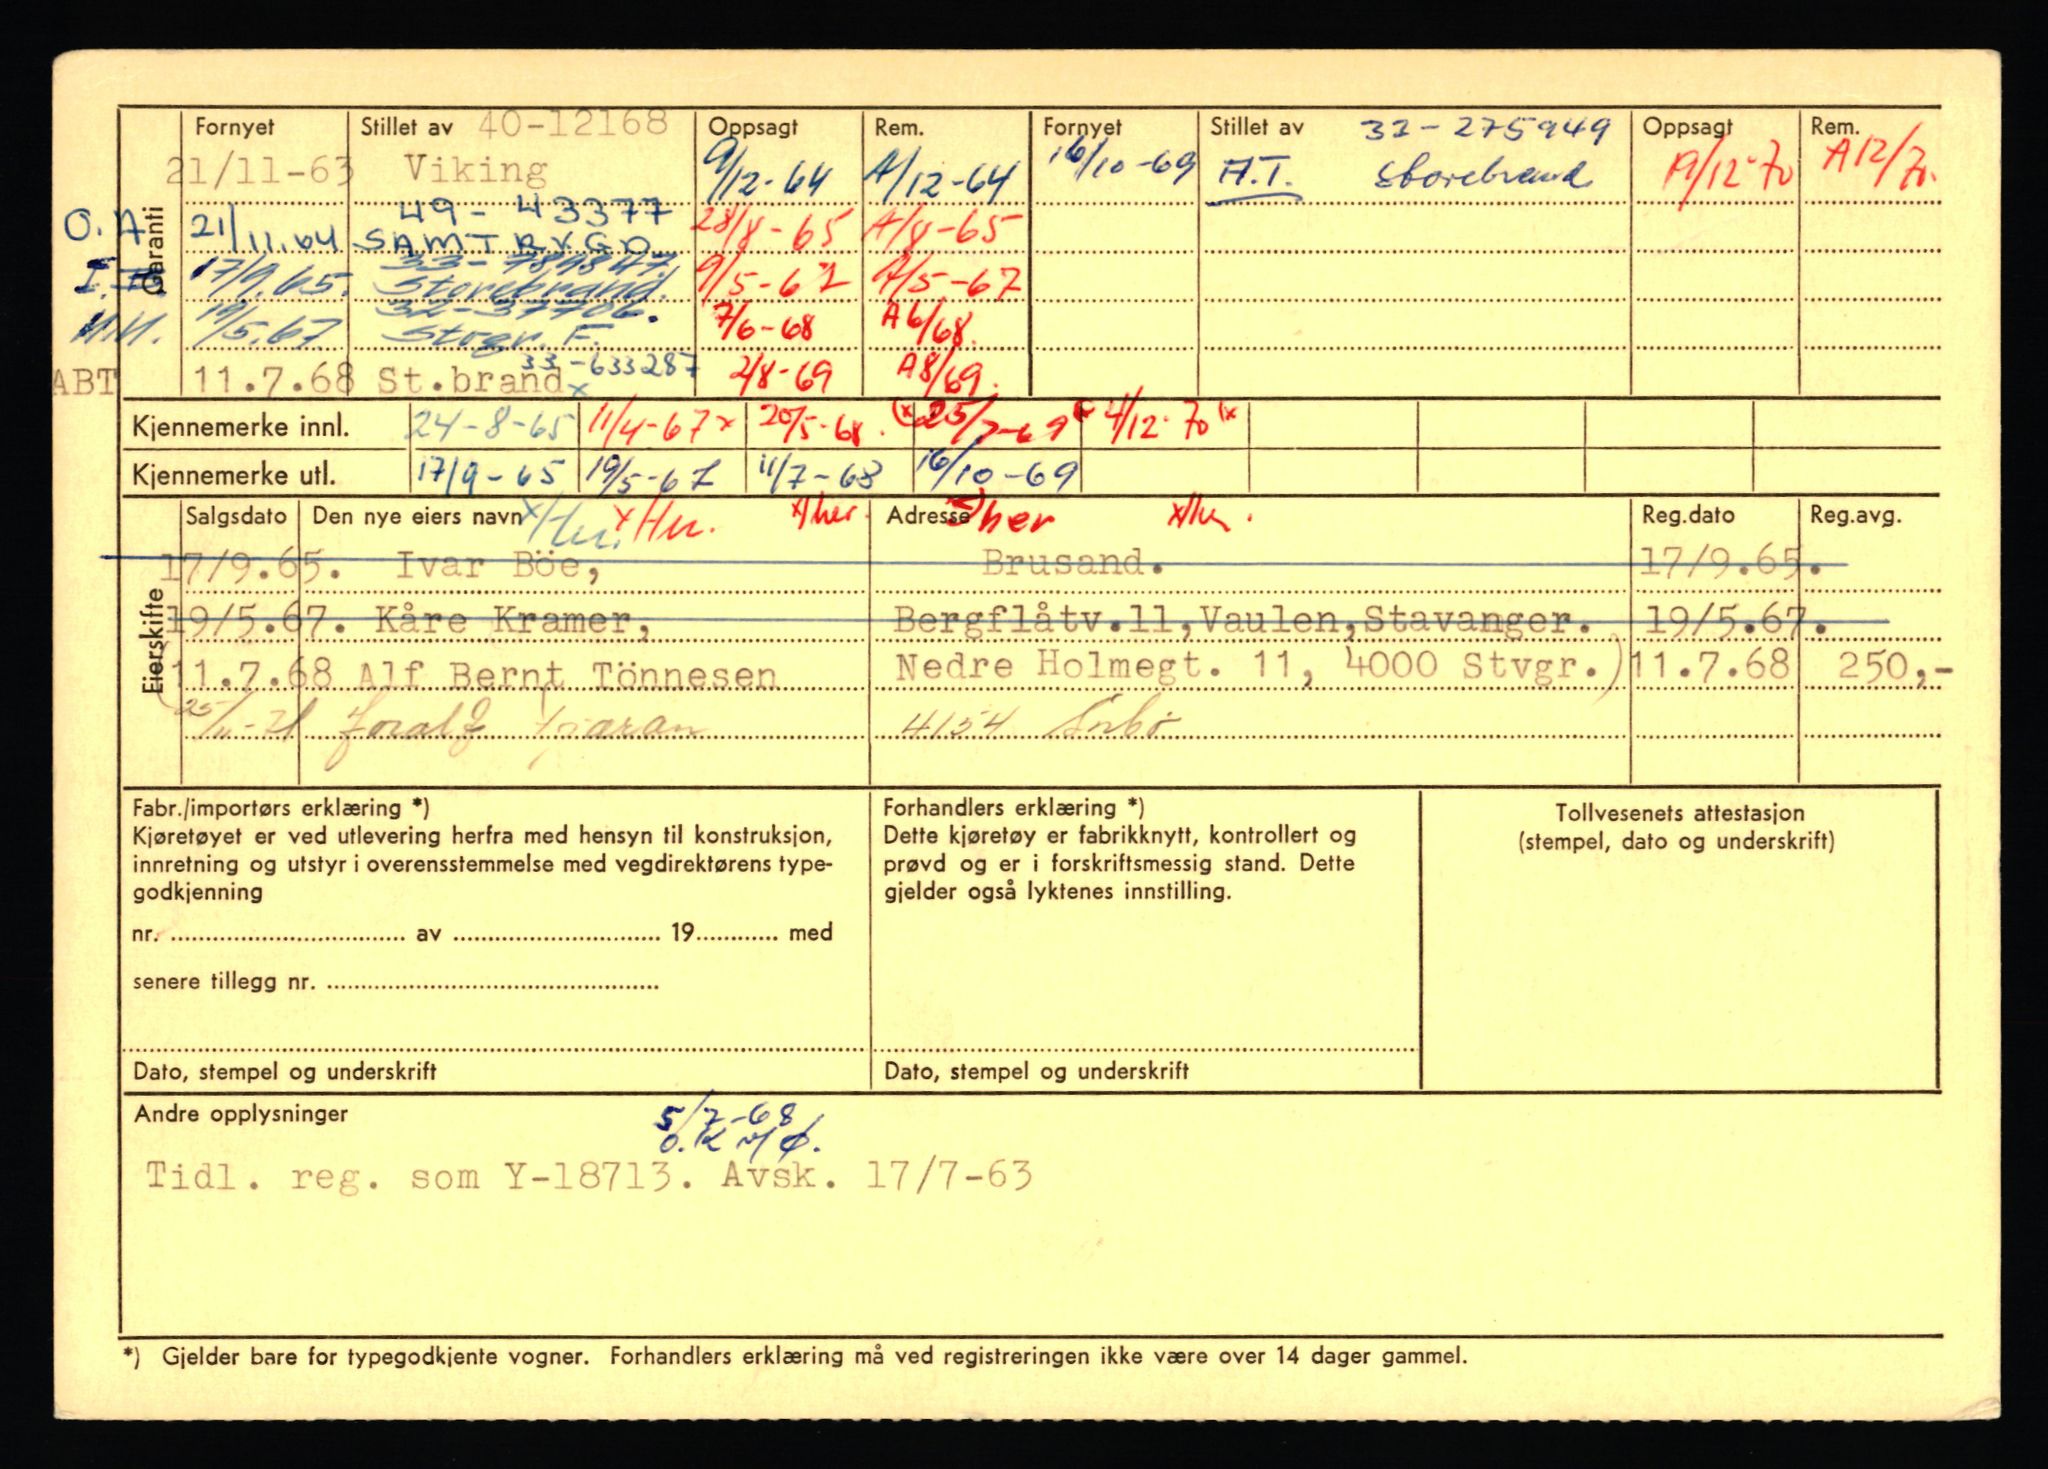 Garanti
Fornyet Stillet av 40-12168 Oppsagt Rem. Fornyet Stillet av 32-275949 Oppsagt Rem.
21/11-63 Viking 9/12-64 A/12-64 16/10-69 A.T. Storebrand 19/12-70 A12/70.
49-43377
O.A 21/11.64 SAMTRYGD 28/8-65 A/8-65
17/9.65. Storebrand. 9/5-67 A/5-67
32-37706.
H.H. 19/5.67 Stogr. F. 7/6-68 A6/68.
33-633287
ABT 11.7.68 St.brand x 2/8-69 A8/69.
Kjennemerke innl. 24-8-65 11/4-67 x 20/5-68. (x 25/7-69 4/12-70 (x
Kjennemerke utl. 17/9-65 19/5-67 11/7-68 16/10-69
Eierskifte
Salgsdato Den nye eiers navn x/her. Adresse her Reg.dato Reg.avg.
17/9.65. Ivar Böe, Brusand. 17/9.65.
19/5.67. Kåre Kramer, Bergflåtv.11,Vaulen,Stavanger. 19/5.67.
11.7.68 Alf Bernt Tönnesen Nedre Holmegt. 11, 4000 Stvgr.) 11.7.68 250,-
4154
Fabr./importørs erklæring *) Forhandlers erklæring *) Tollvesenets attestasjon
Kjøretøyet er ved utlevering herfra med hensyn til konstruksjon, Dette kjøretøy er fabrikknytt, kontrollert og (stempel, dato og underskrift)
innretning og utstyr i overensstemmelse med vegdirektørens type- prøvd og er i forskriftsmessig stand. Dette
godkjenning gjelder også lyktenes innstilling.
nr. ........ av ........ 19........ med
senere tillegg nr. ........
Dato, stempel og underskrift Dato, stempel og underskrift
Andre opplysninger 5/7-68
O.K.
Tidl. reg. som Y-18713. Avsk. 17/7-63
*) Gjelder bare for typegodkjente vogner. Forhandlers erklæring må ved registreringen ikke være over 14 dager gammel.